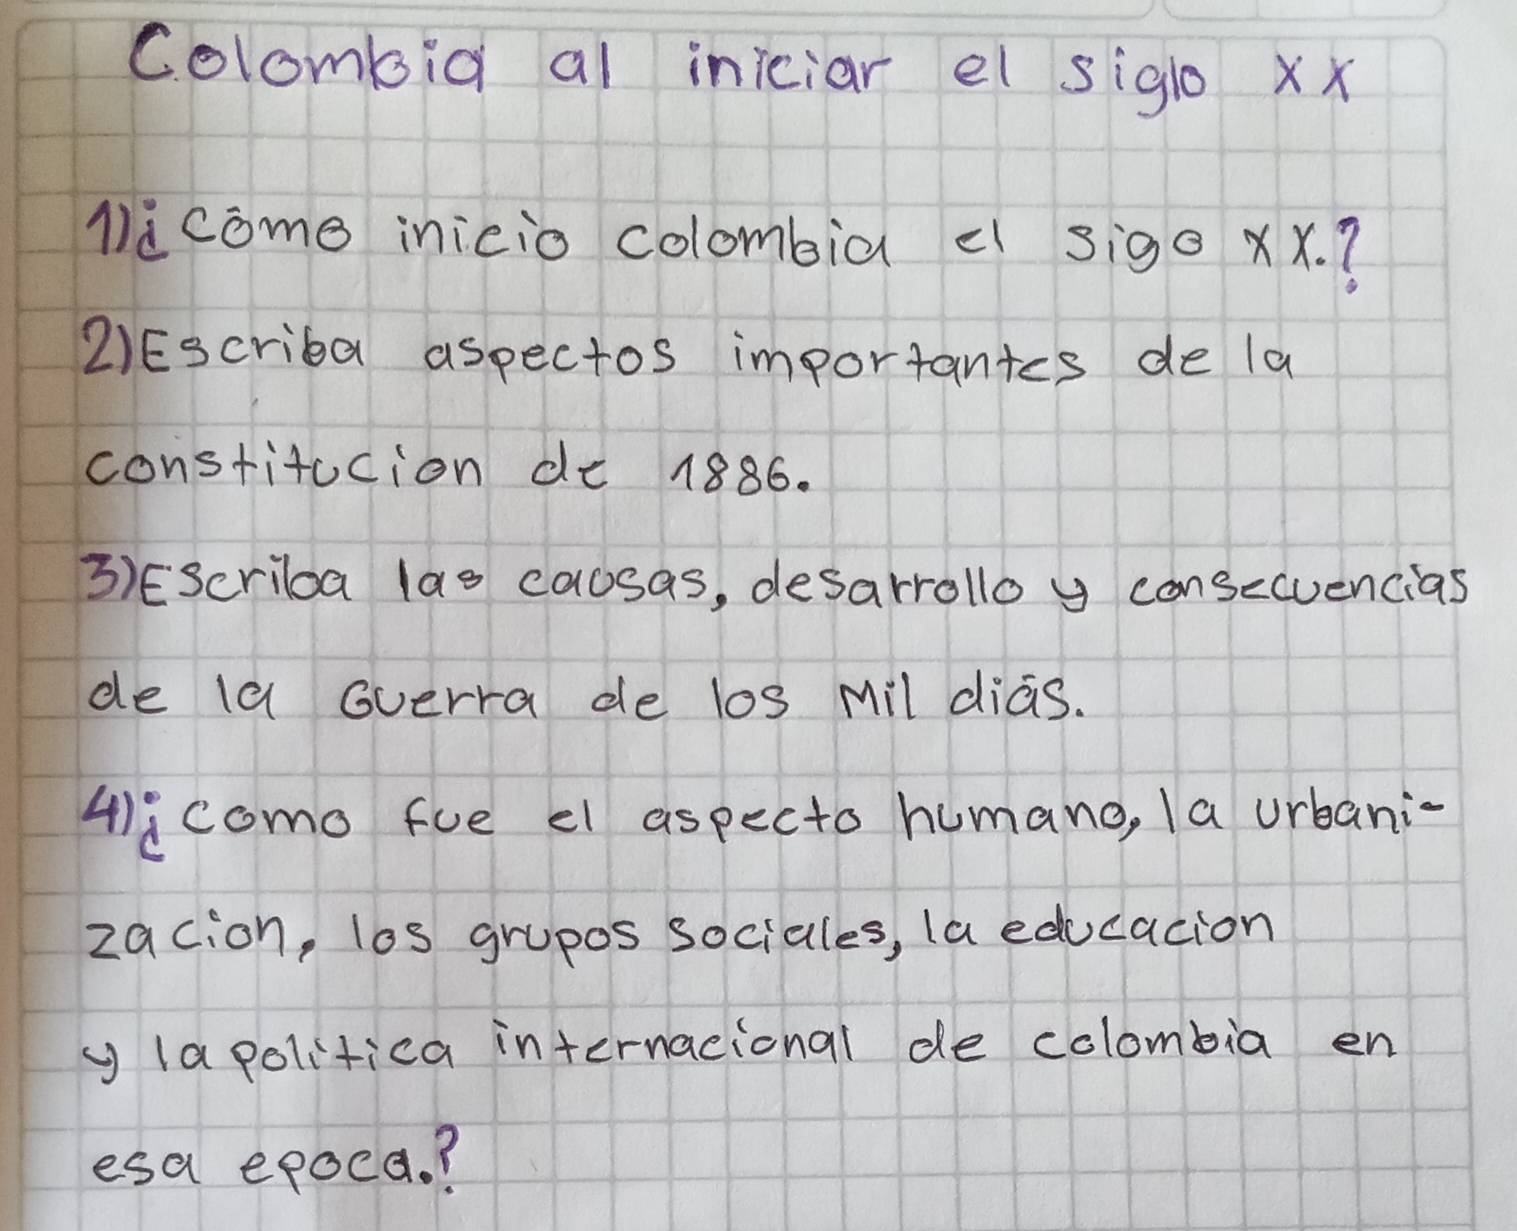 Colombia al iniciar el siglo XX
1) ¿cómo inicio colombia el sigo XX.?
2) Escriba aspectos importantes de la
constitucion de 1886.
3) Escriba las causas, desarrollo y consecuencias
de la Guerra de los Mil diás.
4) ¿como fue el aspecto humano, la urbani-
zacion, los grupos sociales, la educacion
y la politica internacional de colombia en
esa epoca.?